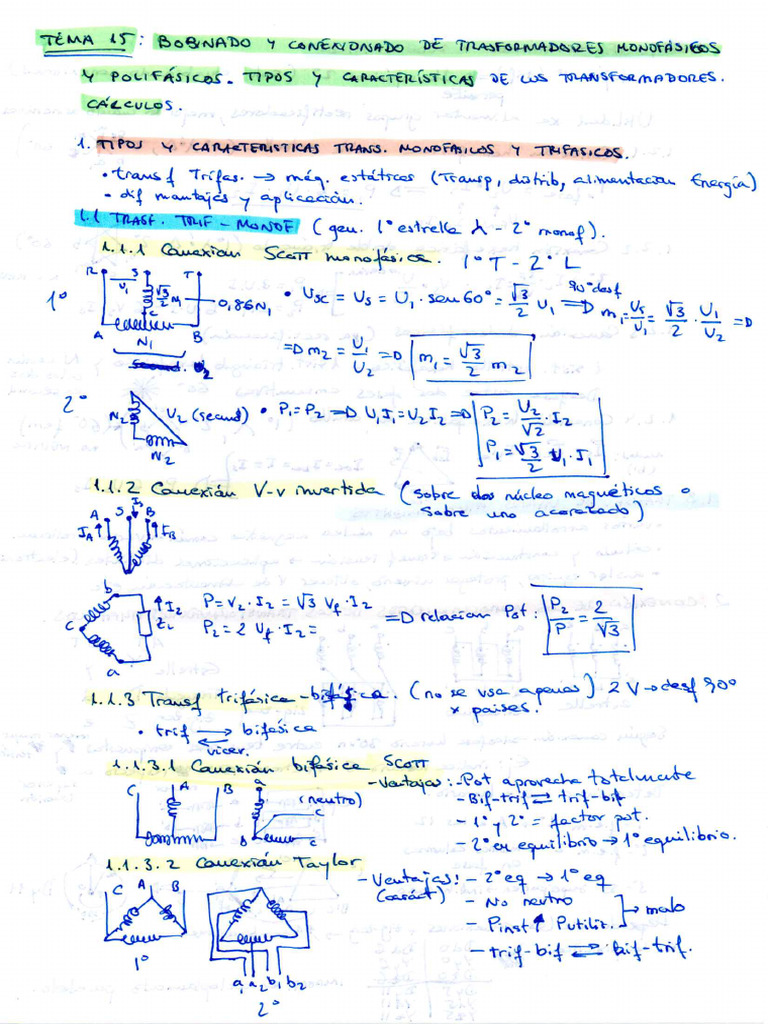 TEMA 15: BOBINADO Y CONEXIONADO DE TRASFORMADORES MONOFÁSICOS
Y POLIFÁSICOS. TIPOS Y CARACTERÍSTICAS DE LOS TRANSFORMADORES.
CÁLCULOS.
1. TIPOS Y CARACTERISTICAS TRANS. MONOFASICOS Y TRIFASICOS.
• transf Trifas. → máq. estáticas (Transp, distrib, alimentacion Energía)
• dif montajes y aplicación.
1.1 TRASF. TRIF - MONOF (gen. 1º estrella λ - 2º monof).
1.1.1 Conexión Scott monofásica. 1º T - 2º L
R S T
U1
√3/2 N1 0,86N1
1º
C
A B
N1
• Usc = Us = U1 · sen 60º = √3/2 U1 ⇒ 90º desf m1 = Us/U1 = √3/2 · U1/U2 ⇒
⇒ m2 = U1/U2 ⇒ m1 = √3/2 m2
2º
N2 U2 (secund)
N2
• P1 = P2 ⇒ U1I1 = U2I2 ⇒ P2 = U2/√2 · I2
P1 = √3/2 U1 · I1
1.1.2 Conexión V-v invertida (sobre dos núcleo magnéticos o
sobre uno acorazado)
A S B
IA Is IB
b
c
a
I2
ZL
P = V2 · I2 = √3 Vf · I2
P2 = 2 Vf · I2 =
⇒ relacion Pot: P2/P = 2/√3
1.1.3 Transf trifásica - bifásica. (no se usa apenas) 2 V → desf 90º
x paises.
• trif ⇄ bifásica
vicer.
1.1.3.1 Conexión bifásica Scott
C A B
a
(neutro)
c
c
- Ventajas: - Pot aprovecha totalmente
- Bif-trif ⇄ trif-bif
- 1º y 2º = factor pot.
- 2º en equilibrio → 1º equilibrio.
1.1.3.2 Conexión Taylor
C A B
1º
a1 a2 b1 b2
2º
- Ventajas: - 2º eq → 1º eq
(caráct) - No neutro
- Pinst ↑ Putiliz. → malo
- trif-bif ⇄ bif-trif.